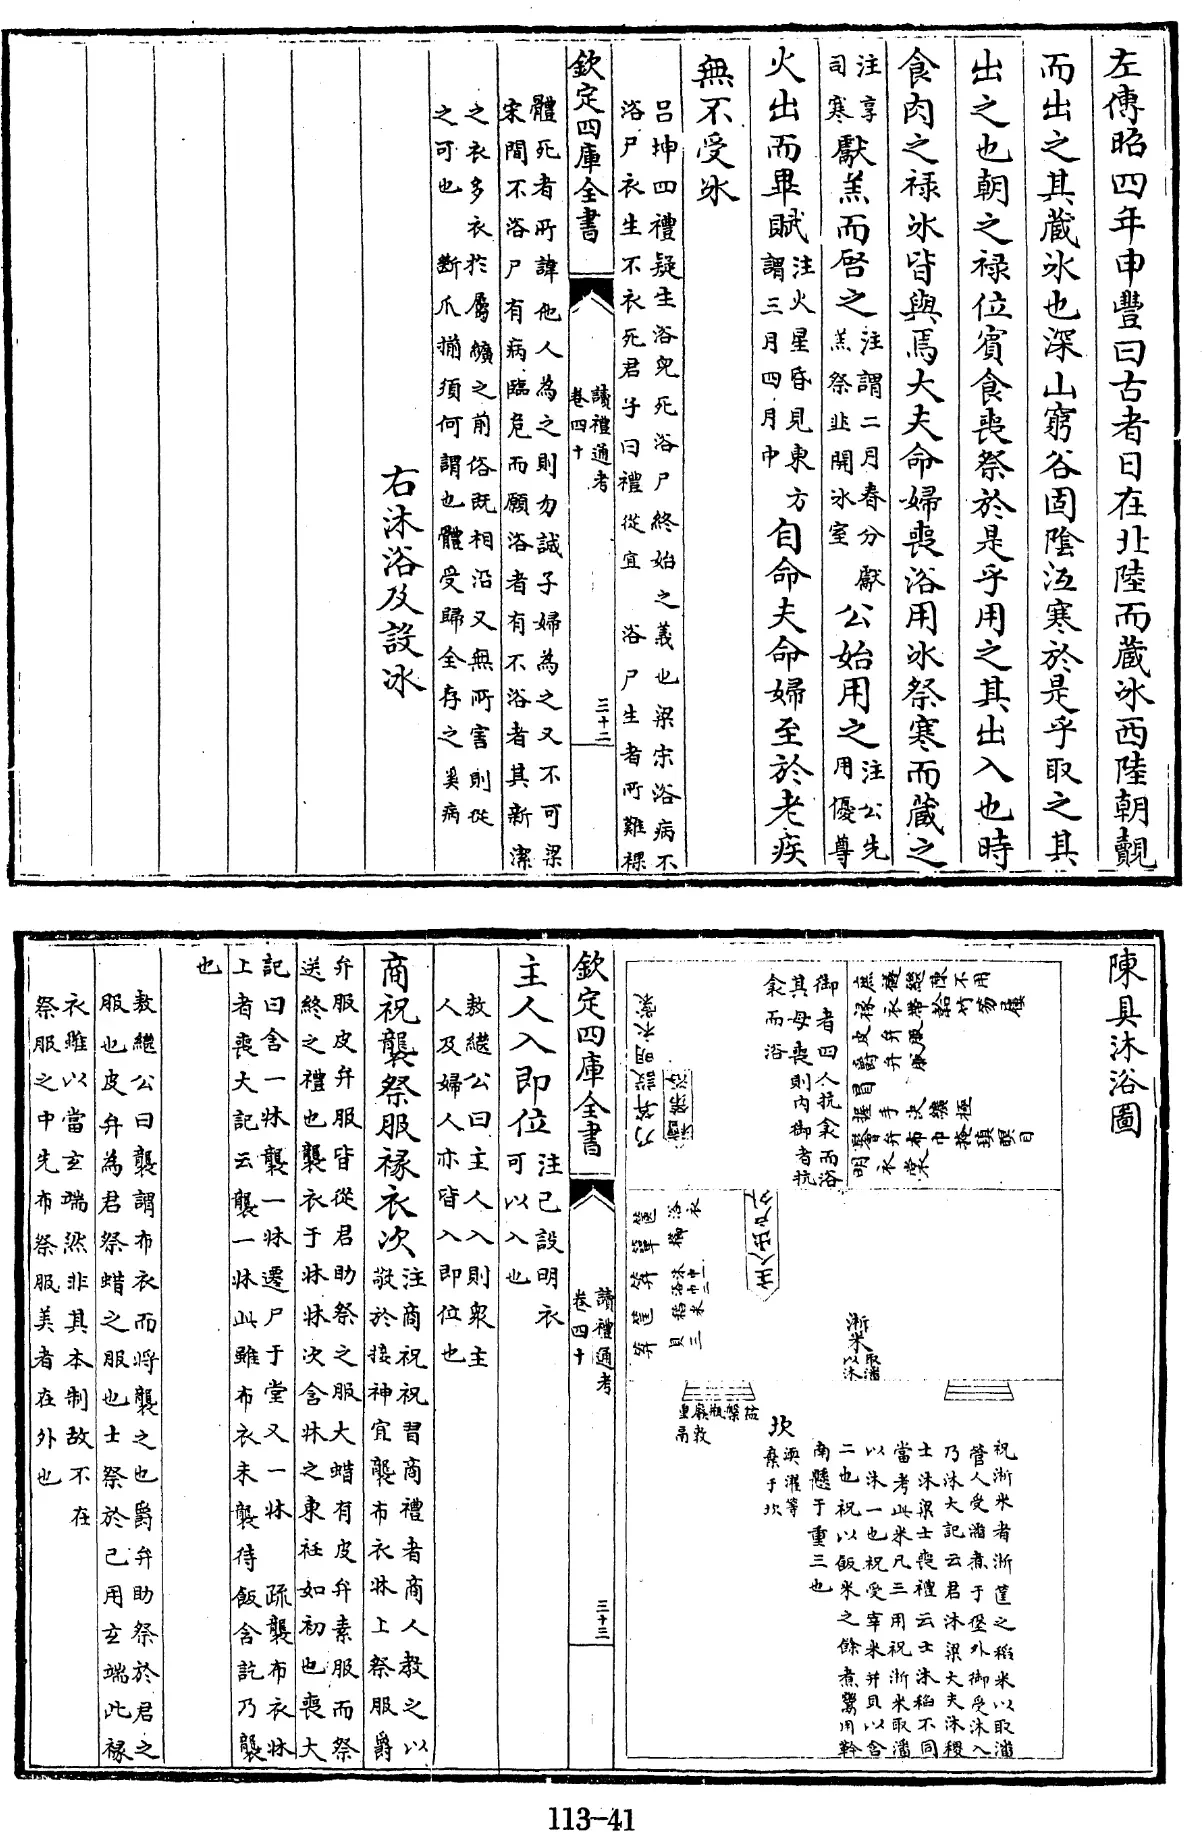 左傳昭四年申豐曰古者日在北陸而藏冰西陸朝覿
而出之其藏冰也深山窮谷固陰沍寒於是乎取之其
出之也朝之禄位賓食喪祭於是乎用之其出入也時
食肉之禄冰皆與焉大夫命婦喪浴用冰祭寒而藏之
注享
司寒
獻羔而啓之
注謂二月春分獻
羔祭韭開冰室
公始用之
注公先
用優尊
火出而畢賦
注火星昏見東方
謂三月四月中
自命夫命婦至於老疾
無不受冰
吕坤四禮疑生浴兒死浴尸終始之義也梁宋浴病不
浴尸衣生不衣死君子曰禮從宜 浴尸生者所難裸
欽定四庫全書
讀禮通考
卷四十
三十二
體死者所諱他人為之則勿誠子婦為之又不可梁
宋間不浴尸有病臨危而願浴者有不浴者其新潔
之衣多衣於屬纊之前俗既相沿又無所害則從
之可也 斷爪揃須何謂也體受歸全存之奚病
右沐浴及設冰
陳具沐浴圖
御者四人抗衾而浴
其母喪則内御者抗
衾而浴
乃筭設明衣裳
主人出户外
淅米
取潘
以沐
坎
渜濯等
棄于坎
祝淅米者淅筐之稻米以取潘
管人受潘煮于垼外御受沐入
乃沐大記云君沐粱大夫沐稷
士沐粱士喪禮云士沐稻不同
當考此米凡三用祝淅米取潘
以沐一也祝受宰米并貝以含
二也祝以飯米之餘煮鬻用幹
南懸于重三也
欽定四庫全書
讀禮通考
卷四十
三十三
主人入即位
注已設明衣
可以入也
敖繼公曰主人入則衆主
人及婦人亦皆入即位也
商祝襲祭服褖衣次
注商祝祝習商禮者商人教之以
敬於接神宜襲布衣牀上祭服爵
弁服皮弁服皆從君助祭之服大蜡有皮弁素服而祭
送終之禮也襲衣于牀牀次含牀之東衽如初也喪大
記曰含一牀襲一牀遷尸于堂又一牀 疏襲布衣牀
上者喪大記云襲一牀此雖布衣未襲待飯含訖乃襲
也
敖繼公曰襲謂布衣而将襲之也爵弁助祭於君之
服也皮弁為君祭蜡之服也士祭於己用玄端此褖
衣雖以當玄端然非其本制故不在
祭服之中先布祭服美者在外也
113-41